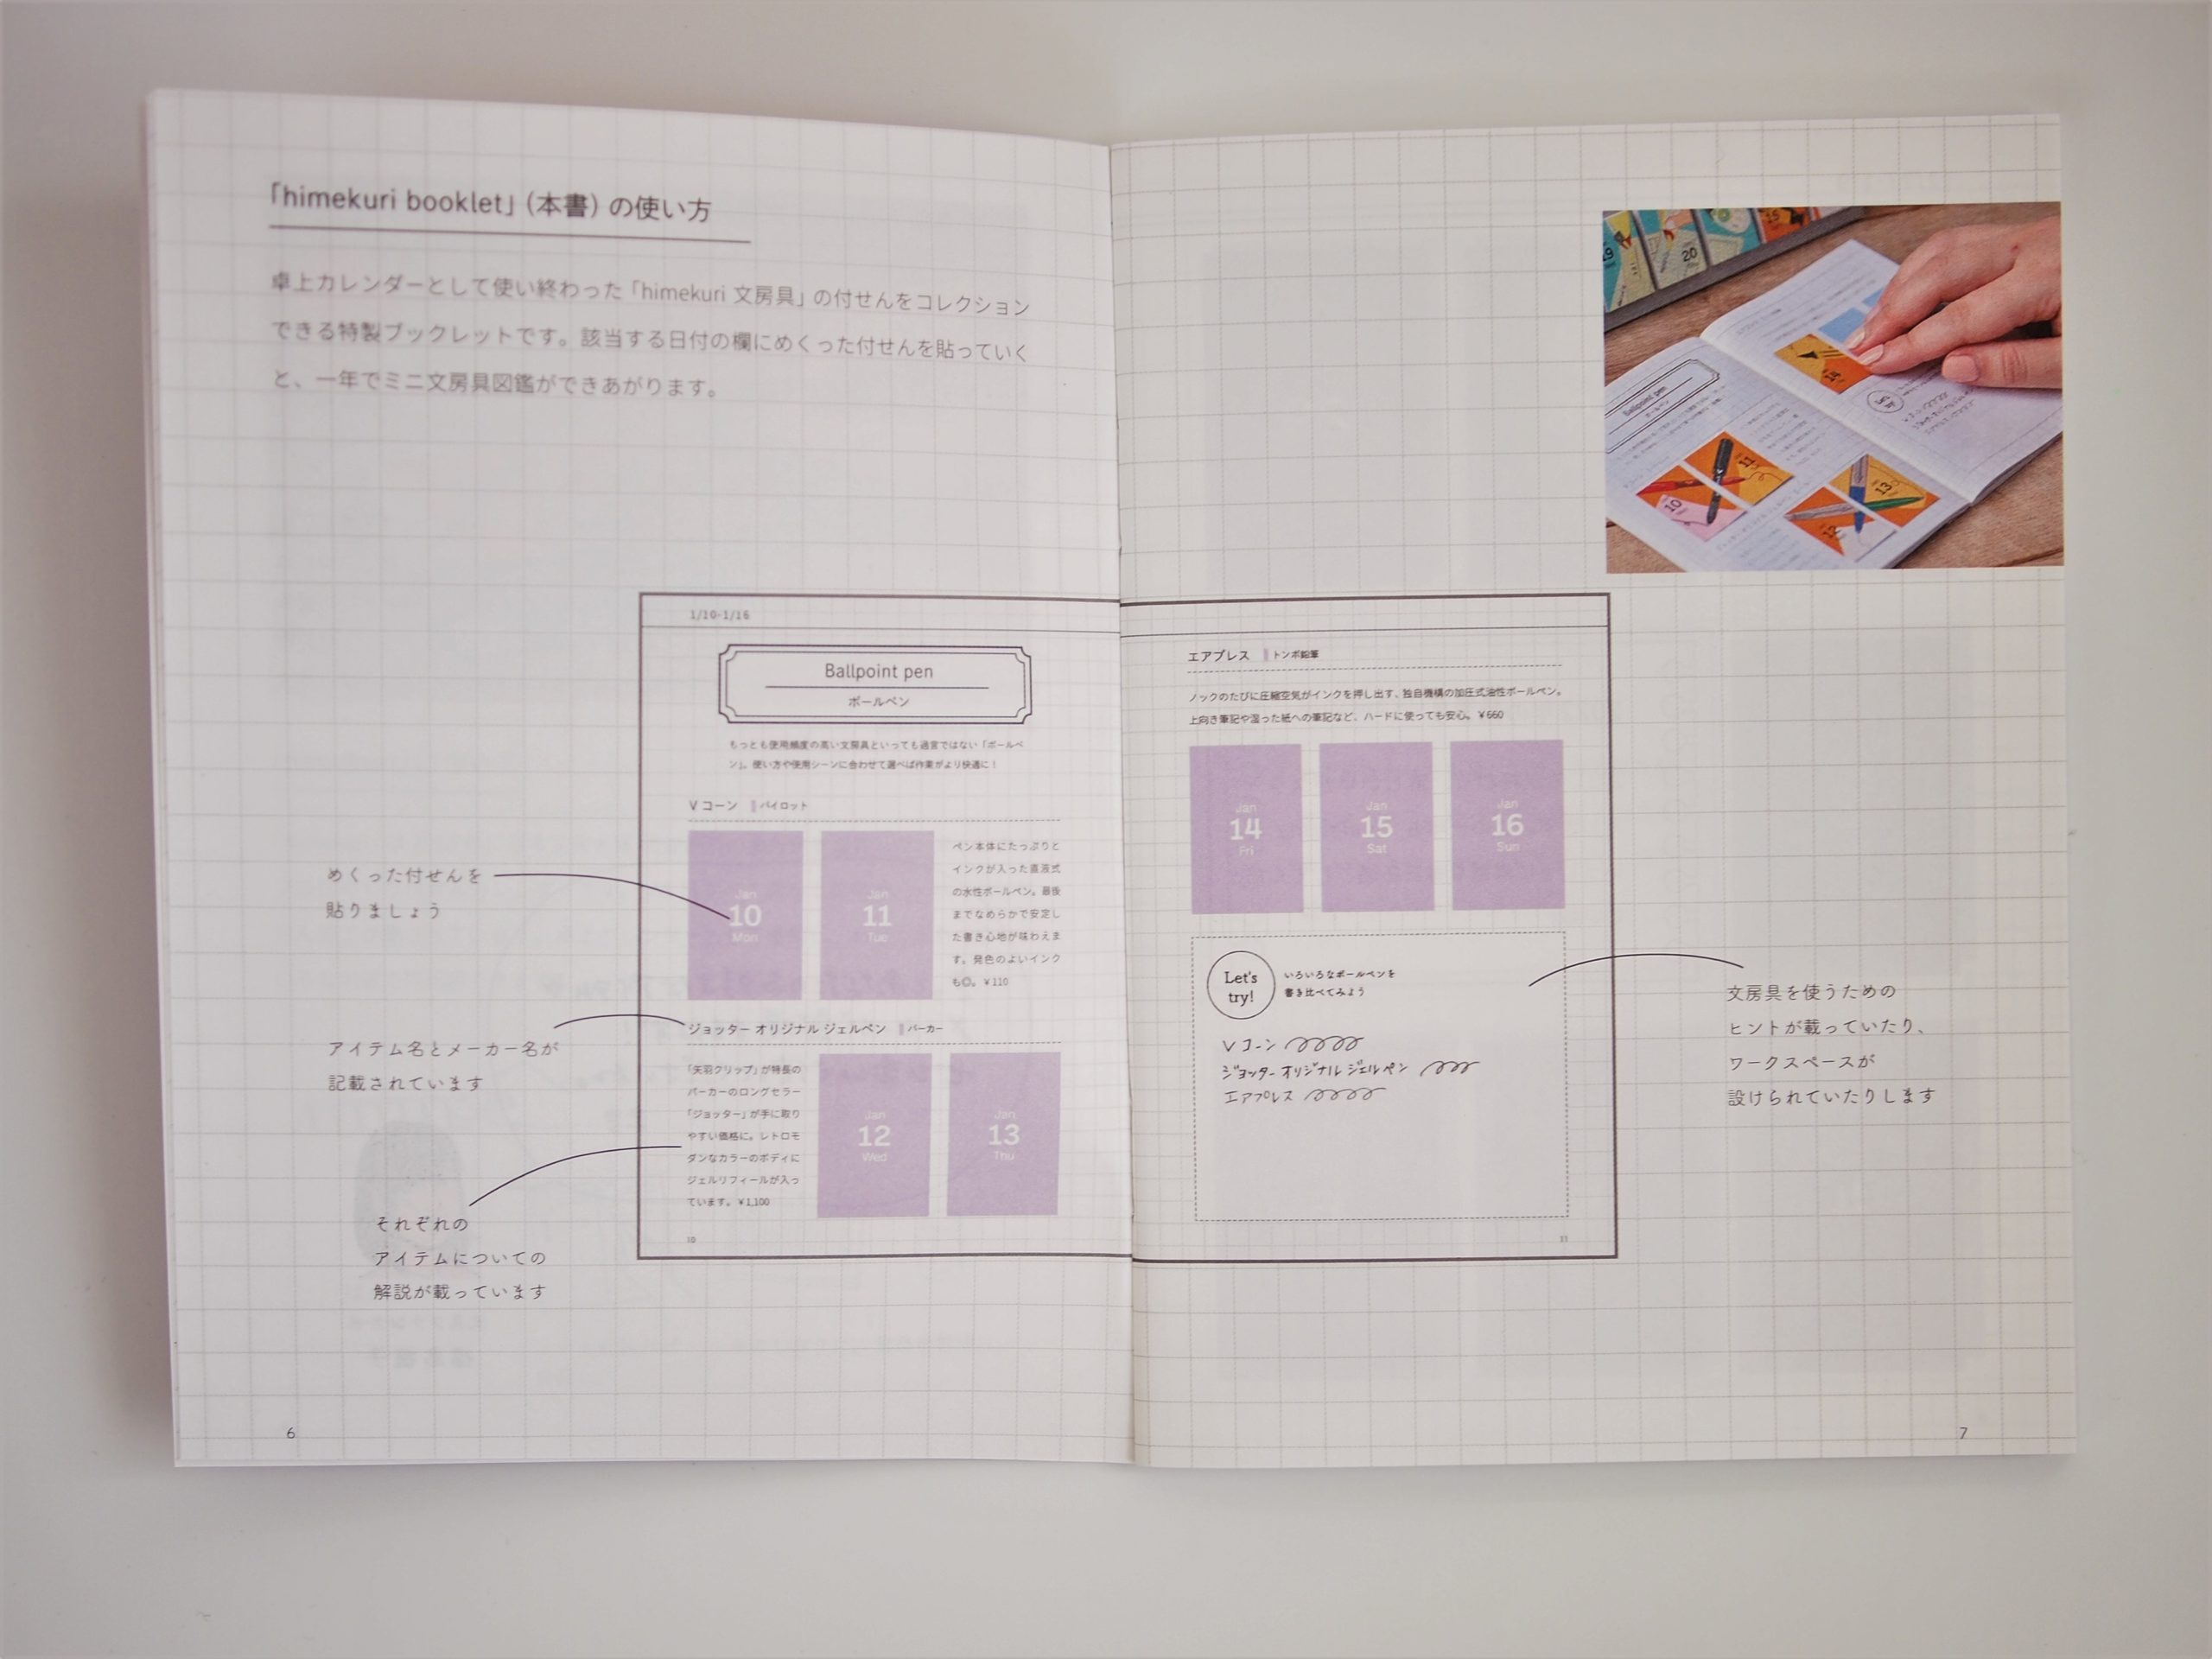 「himekuri booklet」（本書）の使い方
卓上カレンダーとして使い終わった「himekuri 文房具」の付せんをコレクション
できる特製ブックレットです。該当する日付の欄にめくった付せんを貼っていく
と、一年でミニ文房具図鑑ができあがります。
1/10-1/16
Ballpoint pen
ボールペン
もっとも使用頻度の高い文房具といっても過言ではない「ボールペ
ン」。使い方や使用シーンに合わせて選べば作業がより快適に！
V コーン パイロット
Jan
10
Mon
Jan
11
Tue
ペン本体にたっぷりと
インクが入った直液式
の水性ボールペン。最後
までなめらかで安定し
た書き心地が味わえま
す。発色のよいインク
も◎。￥110
ジョッター オリジナル ジェルペン パーカー
「矢羽クリップ」が特長の
パーカーのロングセラー
「ジョッター」が手に取り
やすい価格に。レトロモ
ダンなカラーのボディに
ジェルリフィールが入っ
ています。￥1,100
Jan
12
Wed
Jan
13
Thu
10
めくった付せんを
貼りましょう
アイテム名とメーカー名が
記載されています
それぞれの
アイテムについての
解説が載っています
6
エアプレス トンボ鉛筆
ノックのたびに圧縮空気がインクを押し出す、独自機構の加圧式油性ボールペン。
上向き筆記や湿った紙への筆記など、ハードに使っても安心。￥660
Jan
14
Fri
Jan
15
Sat
Jan
16
Sun
Let's
try!
いろいろなボールペンを
書き比べてみよう
V コーン
ジョッター オリジナル ジェルペン
エアプレス
11
文房具を使うための
ヒントが載っていたり、
ワークスペースが
設けられていたりします
7
19
20
15
14
Ballpoint pen
ボールペン
Let's
try!
11
10
13
12